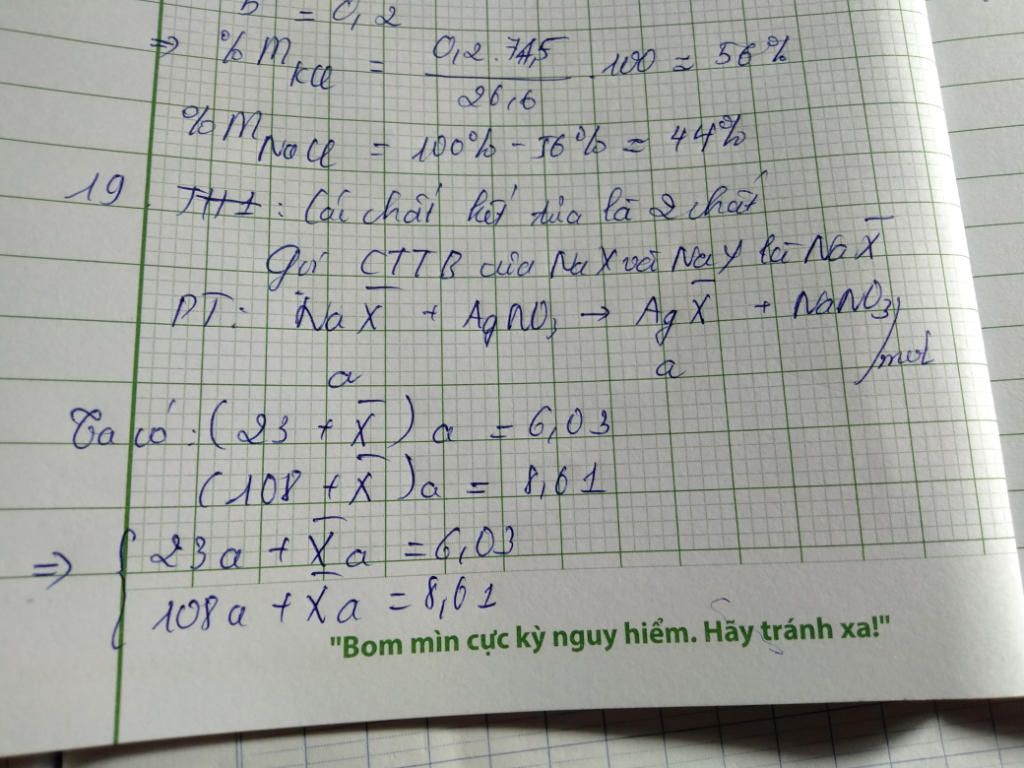 b = 0,2
=> % m KCl = 0,2.74,5 / 26,6 . 100 = 56%
% m NaCl = 100% - 56% = 44%
19. TH1: Các chất kết tủa là 2 chất
Gọi CTTB của NaX và NaY là NaX̅
PT: NaX̅ + AgNO₃ → AgX̅ + NaNO₃
a a /mol
Ta có: (23 + X̅) a = 6,03
(108 + X̅) a = 8,61
=> { 23a + X̅a = 6,03
108a + X̅a = 8,61
"Bom mìn cực kỳ nguy hiểm. Hãy tránh xa!"